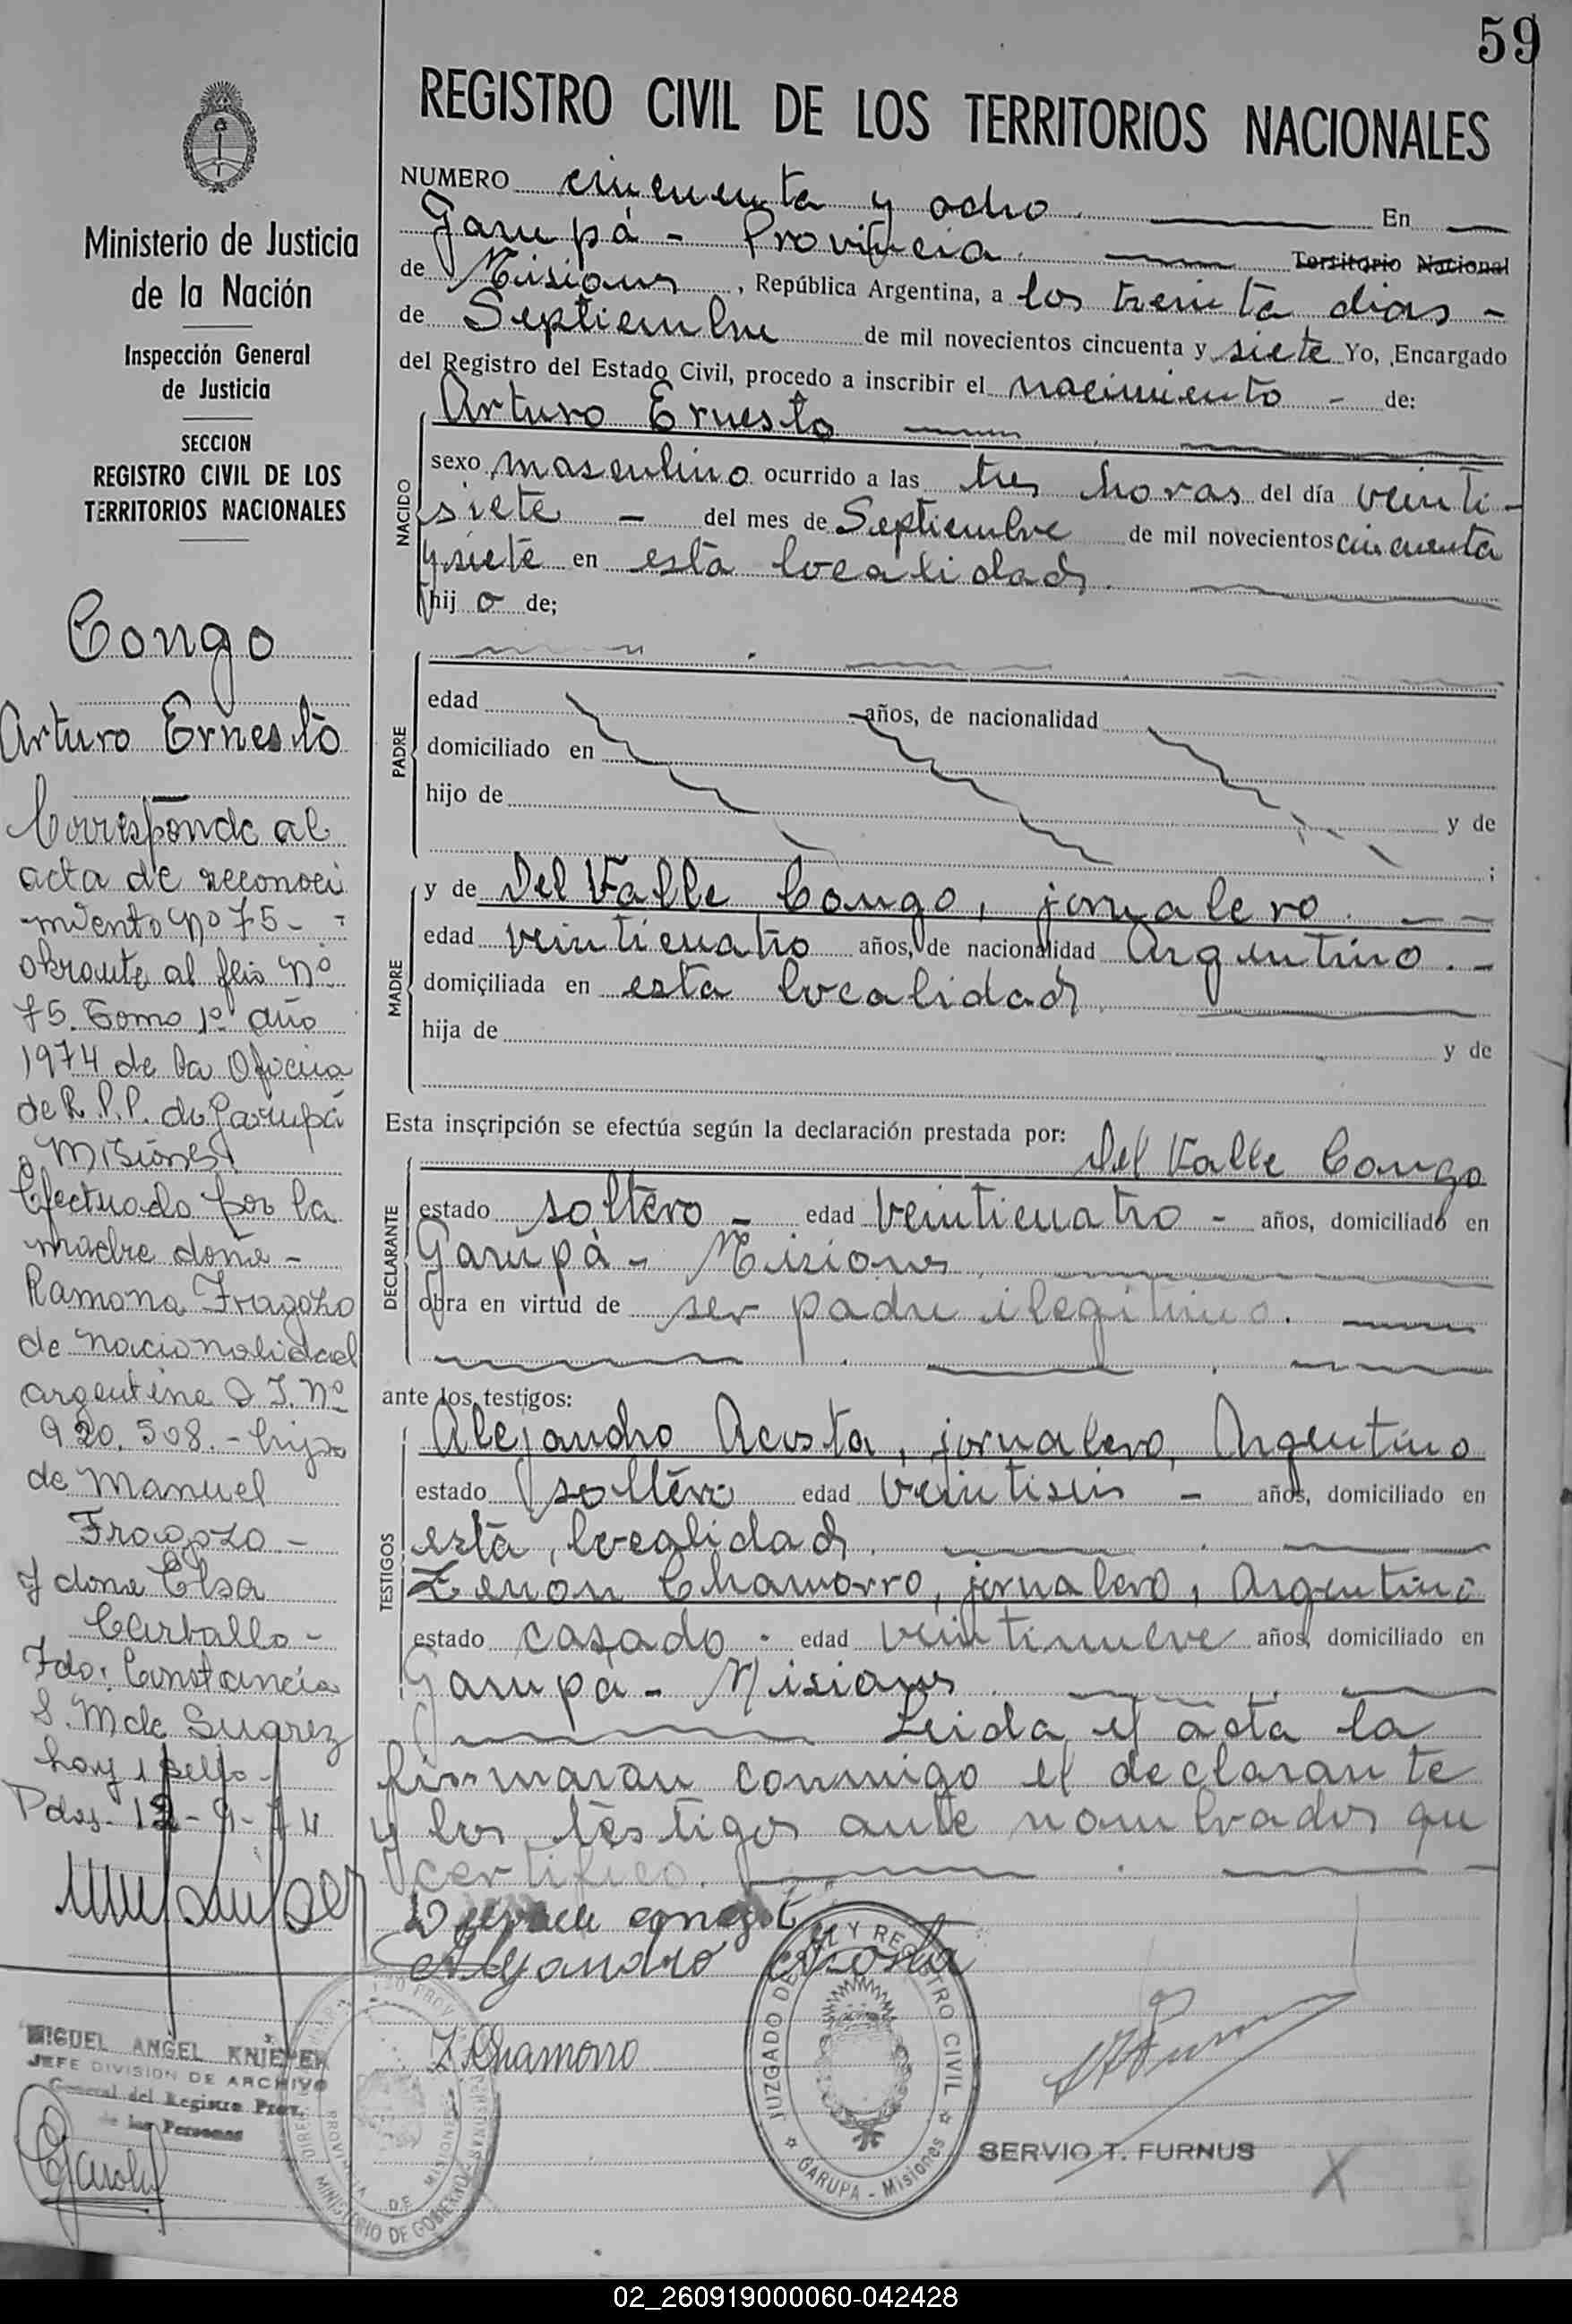 59
REGISTRO CIVIL DE LOS TERRITORIOS NACIONALES
Ministerio de Justicia
de la Nación
Inspección General
de Justicia
SECCION
REGISTRO CIVIL DE LOS
TERRITORIOS NACIONALES
Congo
Arturo Ernesto
Corresponde al
acta de reconoci
miento Nº 75 -
obrante al folio Nº
75. Tomo 1º año
1974 de la Oficina
de R. P. P. de Garupá
Misiones
Efectuado por la
madre doña -
Ramona Fragozo
de nacionalidad
argentina D I. Nº
920.508. - hija
de Manuel
Fragozo -
y dona Elsa
Carballo -
Fdo: Constancia
S. M de Suarez
hay 1 sello -
Pdas. 12-9-74
MIGUEL ANGEL KNIEPER
JEFE DIVISION DE ARCHIVO
General del Registro Prov.
de las Personas
NUMERO cincuenta y ocho. En
Garupá - Provincia. Territorio Nacional
de Misiones, República Argentina, a los treinta dias -
de Septiembre de mil novecientos cincuenta y siete Yo, Encargado
del Registro del Estado Civil, procedo a inscribir el nacimiento - de:
Arturo Ernesto
NACIDO
sexo masculino ocurrido a las tres horas del día veinti-
siete - del mes de Septiembre de mil novecientos cincuenta
y siete en esta localidad.
hij o de;
PADRE
edad años, de nacionalidad
domiciliado en
hijo de y de
;
MADRE
y de Del Valle Congo, jornalero. - -
edad veinticuatro años, de nacionalidad Argentino. -
domiciliada en esta localidad
hija de y de
Esta inscripción se efectúa según la declaración prestada por: Del Valle Congo
DECLARANTE
estado soltero - edad veinticuatro - años, domiciliado en
Garupá - Misiones
obra en virtud de ser padre ilegitimo.
ante los testigos:
TESTIGOS
Alejandro Acosta, jornalero, Argentino
estado soltero edad veintiseis - años, domiciliado en
esta localidad.
Zenon Chamorro, jornalero, Argentino
estado casado - edad veintinueve años, domiciliado en
Garupá - Misiones
Leida el acta la
firmaran conmigo el declarante
y los testigos ante nombrados que
certifico.
Alejandro Acosta
Z. Chamorro
JUZGADO DE PAZ Y REGISTRO CIVIL
GARUPA - Misiones
MINISTERIO DE GOBIERNO
PROVINCIA DE MISIONES
SERVIO T. FURNUS
X
02_260919000060-042428